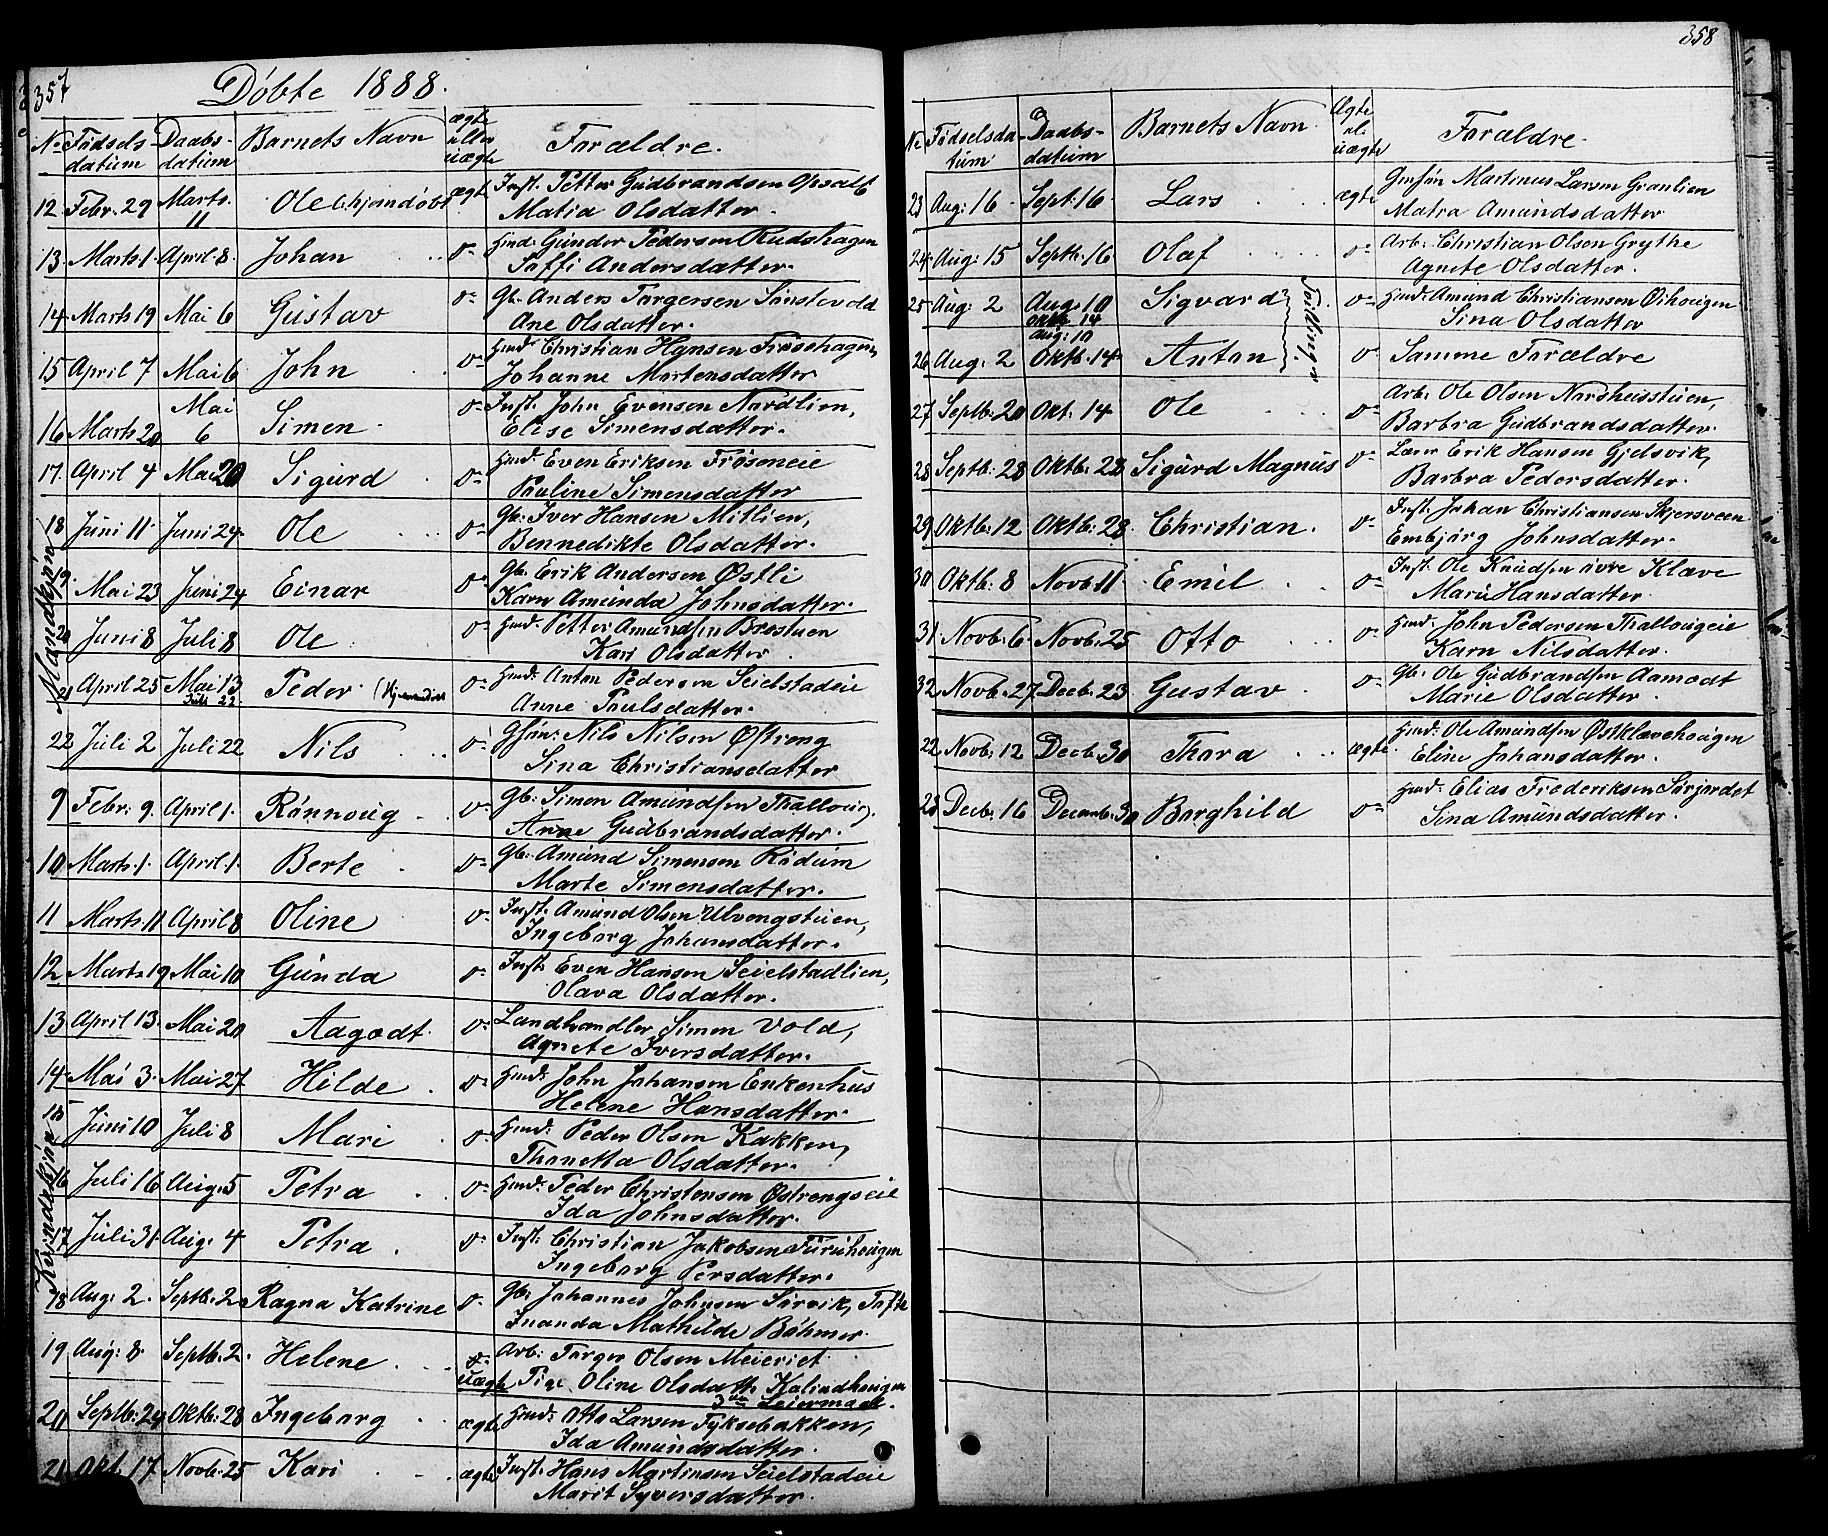 357
Döbte 1888.
No Födsels datum Daabs- datum Barnets Navn ægte eller uægte Forældre.
Mandkjön
12 Febr. 29 Marts. 11 Ole hjemdöbt ægte Inst. Petter Gudbrandsen Opsalt
Matia Olsdatter.
13. Marts 1. April 8. Johan Hmd: Gunder Pedersen Rudshagen
Soffi Andersdatter.
14 Marts 19 Mai 6 Gustav Gb. Anders Torgersen Sönstevold
Ane Olsdatter.
15 April 7 Mai 6 John Hmd: Christian Hansen Frösehagen,
Johanne Mortensdatter
16 Marts 20 Mai 6 Simen Inst. John Evensen Nordlien,
Elise Simensdatter.
17. April 4 Mai 20 Sigurd Hmd: Even Eriksen Frösoneie
Pauline Simensdatter
18 Juni 11 Juni 24 Ole Gb: Iver Hansen Mitlien,
Bennedikte Olsdatter.
19. Mai 23 Juni 24 Einar Gb. Erik Andersen Østli
Karn Amunda Johnsdatter.
20 Juni 8 Juli 8 Ole Hmd: Petter Amundsen Brostuen
Kari Olsdatter
21 April 25 Mai 13 Juli 22. Peder Hmd: Anton Pedersen Seielstadeie
Anne Paulsdatter.
22 Juli 2 Juli 22 Nils Gsön: Nils Nilsen Østreng
Sina Christiansdatter
Kvindekjön
9 Febr. 9. April 1. Rönnoug Gb: Simon Amundsen Thalloug.
Anne Gudbrandsdatter.
10 Marts 1. April 1. Berte Gb: Amund Simensen Rödum
Marte Simensdatter.
11 Marts 11 April 8 Oline Inst. Amund Olsen Ulvengstuen,
Ingeborg Johansdatter.
12 Marts 19 Mai 10 Gunda Inst. Even Hansen Seielstadlien,
Olava Olsdatter.
13 April 13. Mai 20 Aagodt Landhandler Simen Vold,
Agnete Iversdatter.
14 Mai 3. Mai 27 Hilde Hmd: John Johansen Enkenhus
Helene Hansdatter.
15 Juni 10 Juli 8 Mari Hmd: Peder Olsen Kakken,
Thonetta Olsdatter.
16 Juli 16 Aug: 5 Petra Hmd: Peder Christensen Østrengseie
Ida Johnsdatter.
17 Juli 31. Aug: 4 Petra Inst: Christian Jakobsen Furuhougen
Ingeborg Persdatter.
18 Aug: 2. Septb. 2 Ragna Katrine Gb: Johannes Johnsen Sörvik,
Inanda Mathilde Böhmer.
19 Aug: 8 Septb. 2. Helene uægte Arb: Torger Olsen Meieriet
Pige Oline Olsdatt. Kalundhougen
3die Leiermaal.
20 Septb: 24 Oktb: 28 Ingeborg ægte Hmd: Otto Larsen Fyksebakken,
Ida Amundsdatter.
21 Okt. 17 Novb. 25 Kari ægte Inst: Hans Martinsen Seielstadeie
Marit Syversdatter.
358
No Födselsdatum Daabs- datum Barnets Navn Ægte el. uægte Forældre.
23 Aug: 16 Sept: 16 Lars ægte Martinus Larsen Granlien
Matra Amundsdatter
24 Aug: 15 Septb. 16 Olaf Arb: Christian Olsen Grythe
Agnete Olsdatter.
25 Aug: 2 Aug: 10 Oktb. 14 Sigvard Tvillinger Hmd: Amund Christiansen Öihougen
Sina Olsdatter
26 Aug. 2 Aug: 10 Oktb. 14 Anton Samme Forældre
27 Septb. 20 Okt. 14 Ole Arb: Ole Olsen Nordhusstuen,
Barbra Gudbrandsdatter.
28 Septb: 28 Oktb: 28 Sigurd Magnus Lærer Erik Hansen Gjelsvik,
Barbra Pedersdatter.
29 Oktb: 12 Oktb: 28 Christian. Inst. Johan Christiansen Skjersveen
Embjörg Johnsdatter.
30 Oktb: 8 Novb 11 Emil Inst: Ole Knudsen övre Klæve
Mari Hansdatter.
31. Novb: 6 Novb. 25 Otto Hmd: John Pedersen Thallougeie
Karn Nilsdatter.
32 Novb. 27 Decb. 23 Gustav Gb: Ole Gudbrandsen Aamodt
Marie Olsdatter.
22 Novb. 12 Decb. 30 Thora ægte Hmd: Ole Amundsen Østklævehougen
Eline Johansdatter.
23 Decb. 16 Decemb. 30 Borghild Hmd: Elias Frederiksen Sörjordet
Sina Amundsdatter.